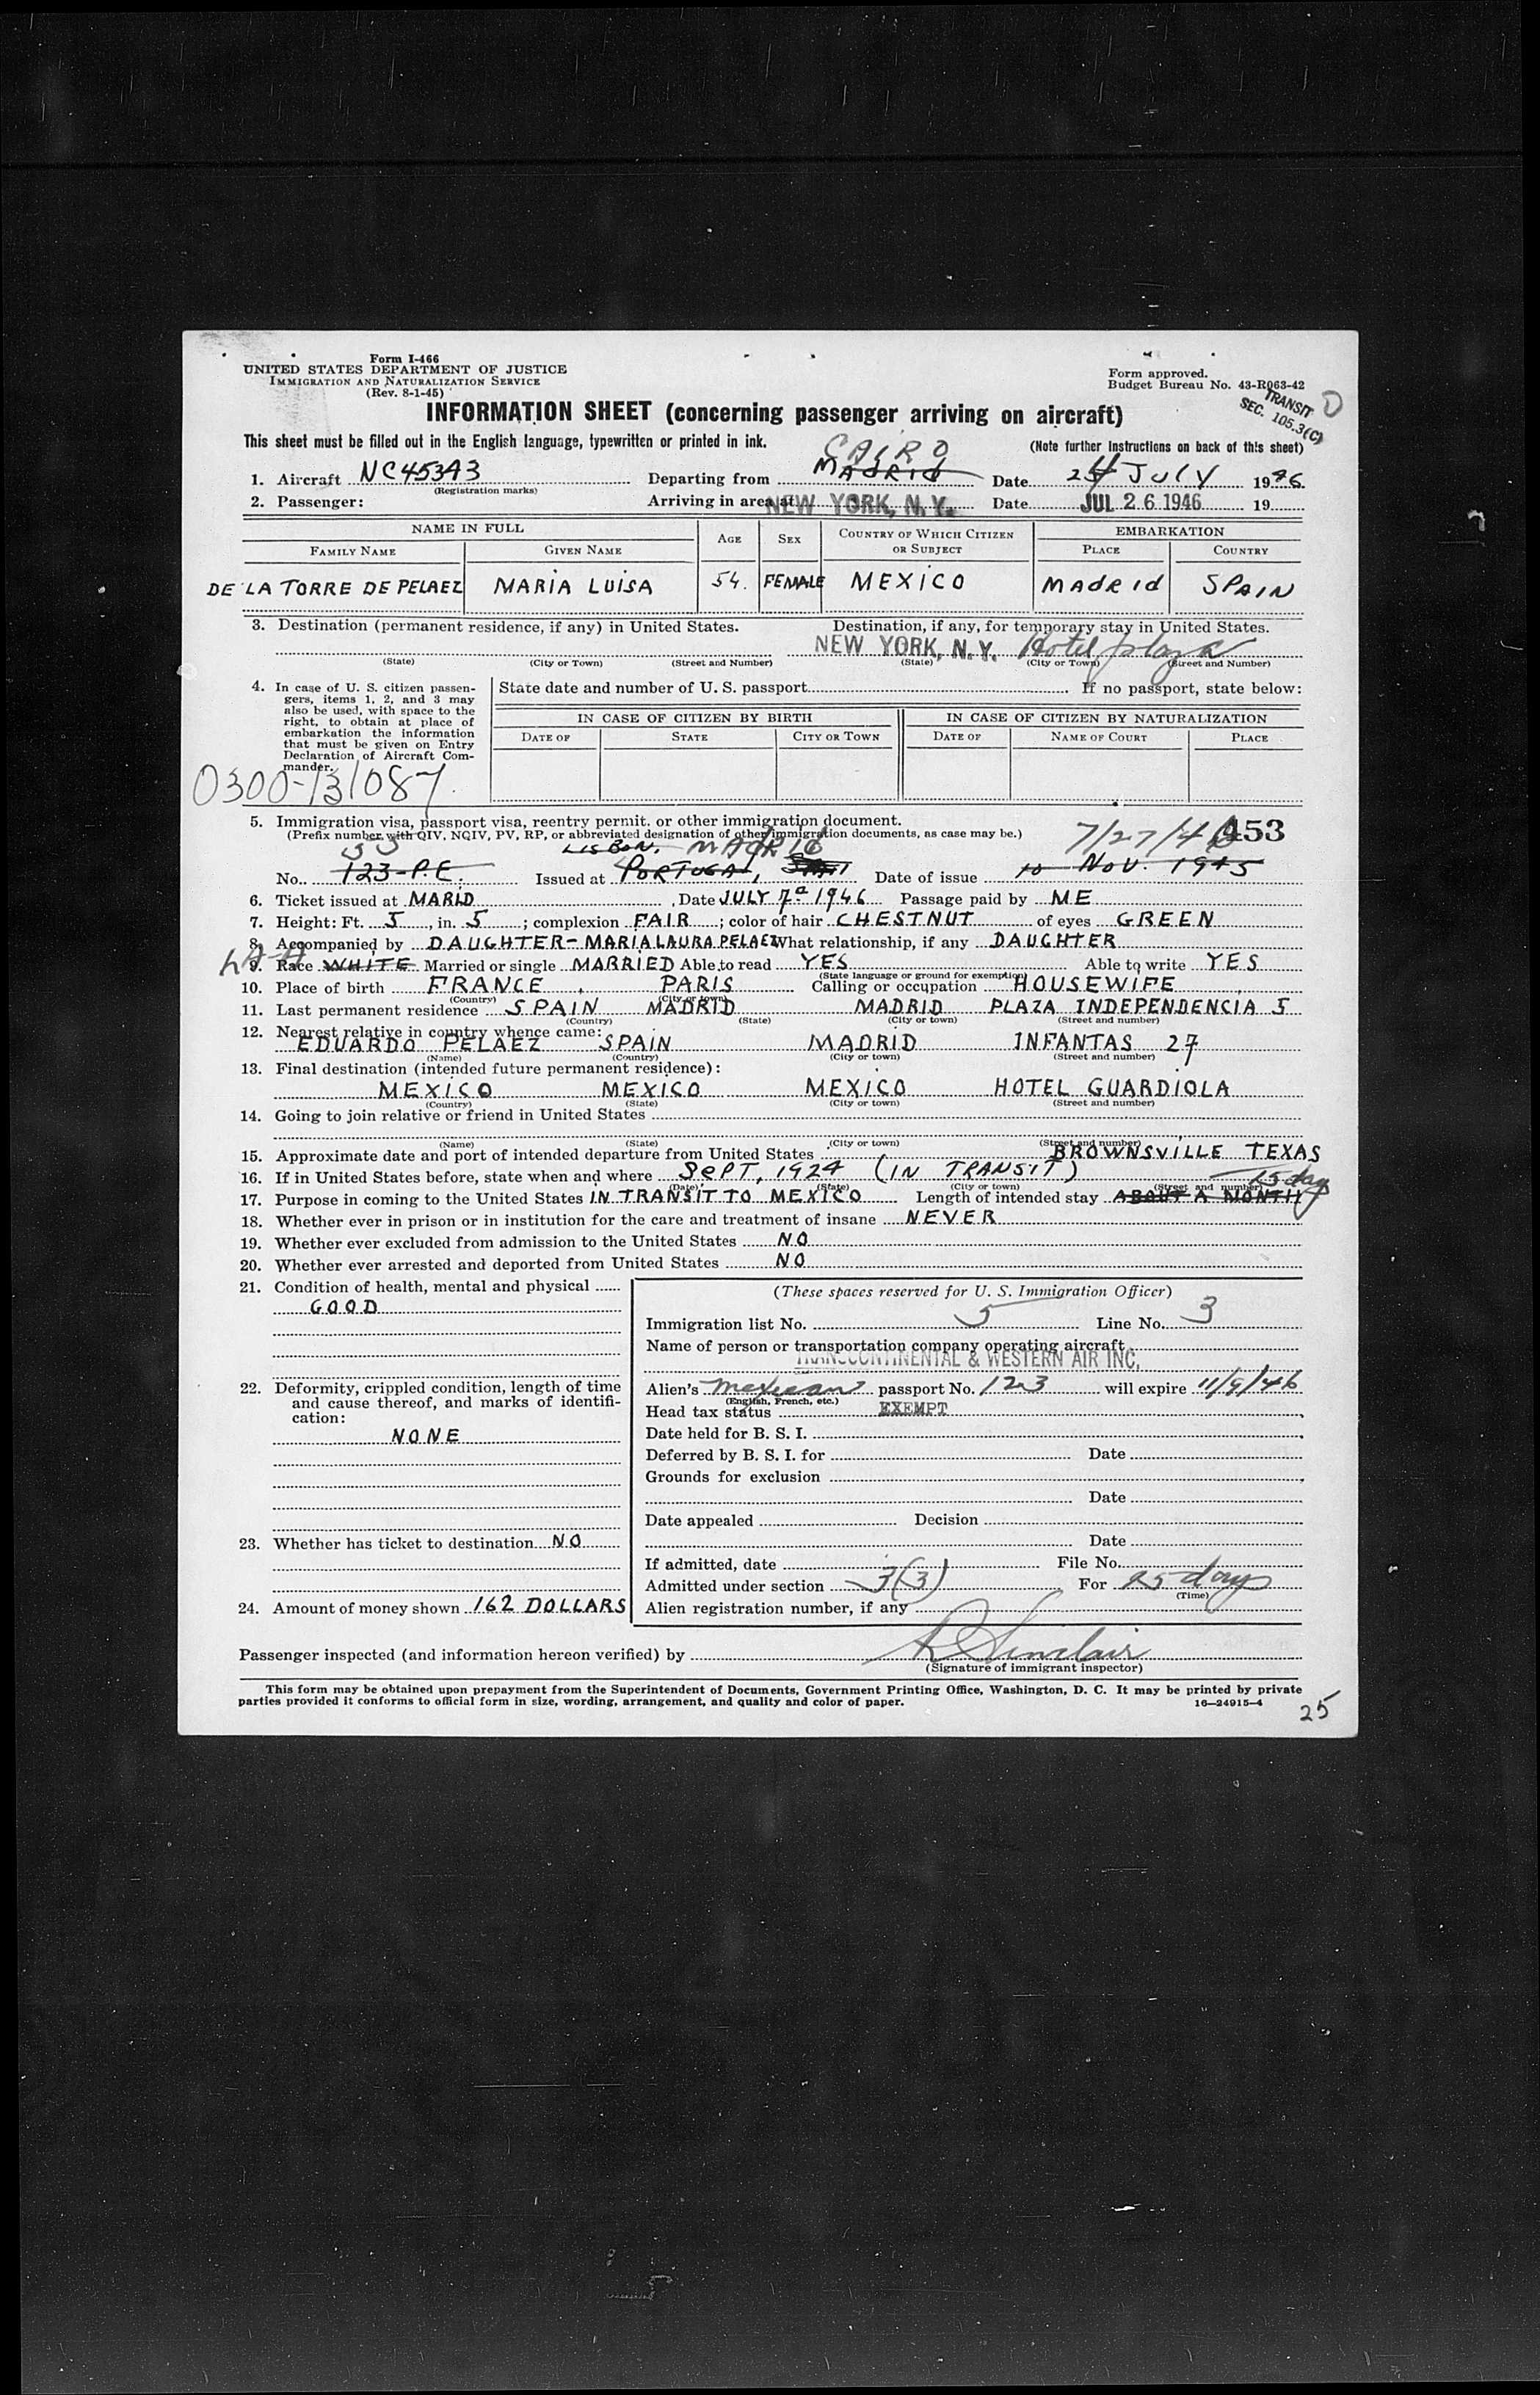 Form I-466
UNITED STATES DEPARTMENT OF JUSTICE
IMMIGRATION AND NATURALIZATION SERVICE
(Rev. 8-1-45)
Form approved.
Budget Bureau No. 43-R063-42
TRANSIT
SEC. 105.3(C)
INFORMATION SHEET (concerning passenger arriving on aircraft)
This sheet must be filled out in the English language, typewritten or printed in ink.
(Note further instructions on back of this sheet)
CAIRO
1. Aircraft NC45343 Departing from MADRID Date 24 JULY 1946
(Registration marks)
2. Passenger: Arriving in area at NEW YORK, N.Y. Date JUL 26 1946 19
NAME IN FULL AGE SEX COUNTRY OF WHICH CITIZEN OR SUBJECT EMBARKATION
FAMILY NAME GIVEN NAME PLACE COUNTRY
DE LA TORRE DE PELAEZ MARIA LUISA 54. FEMALE MEXICO MADRID SPAIN
3. Destination (permanent residence, if any) in United States. Destination, if any, for temporary stay in United States.
NEW YORK, N.Y. Hotel plaza
(State) (City or Town) (Street and Number) (State) (City or Town) (Street and Number)
4. In case of U. S. citizen passengers, items 1, 2, and 3 may also be used, with space to the right, to obtain at place of embarkation the information that must be given on Entry Declaration of Aircraft Commander.
State date and number of U. S. passport If no passport, state below:
IN CASE OF CITIZEN BY BIRTH IN CASE OF CITIZEN BY NATURALIZATION
DATE OF STATE CITY OR TOWN DATE OF NAME OF COURT PLACE
0300-131087
5. Immigration visa, passport visa, reentry permit, or other immigration document.
(Prefix number with QIV, NQIV, PV, RP, or abbreviated designation of other immigration documents, as case may be.)
7/27/46 453
LISBON, MADRID
No. 123-P.E. Issued at PORTUGAL, Date of issue 10 NOV. 1945
6. Ticket issued at MARID, Date JULY 7a 1946 Passage paid by ME
7. Height: Ft. 5, in. 5; complexion FAIR; color of hair CHESTNUT of eyes GREEN
8. Accompanied by DAUGHTER- MARIA LAURA PELAEZ What relationship, if any DAUGHTER
9. Race WHITE Married or single MARRIED Able to read YES Able to write YES
(State language or ground for exemption)
10. Place of birth FRANCE, PARIS Calling or occupation HOUSEWIFE
(Country) (City or town)
11. Last permanent residence SPAIN MADRID MADRID PLAZA INDEPENDENCIA 5
(Country) (State) (City or town) (Street and number)
12. Nearest relative in country whence came:
EDUARDO PELAEZ SPAIN MADRID INFANTAS 27
(Name) (Country) (City or town) (Street and number)
13. Final destination (intended future permanent residence):
MEXICO MEXICO MEXICO HOTEL GUARDIOLA
(Country) (State) (City or town) (Street and number)
14. Going to join relative or friend in United States
(Name) (State) (City or town) (Street and number)
15. Approximate date and port of intended departure from United States BROWNSVILLE TEXAS
16. If in United States before, state when and where SEPT, 1924 (IN TRANSIT)
(Date) (State) (City or town) (Street and number)
15 days
17. Purpose in coming to the United States IN TRANSIT TO MEXICO Length of intended stay ABOUT A MONTH
18. Whether ever in prison or in institution for the care and treatment of insane NEVER
19. Whether ever excluded from admission to the United States NO
20. Whether ever arrested and deported from United States NO
21. Condition of health, mental and physical
GOOD
22. Deformity, crippled condition, length of time and cause thereof, and marks of identification:
NONE
23. Whether has ticket to destination NO
24. Amount of money shown 162 DOLLARS
(These spaces reserved for U. S. Immigration Officer)
Immigration list No. 5 Line No. 3
Name of person or transportation company operating aircraft
TRANSCONTINENTAL & WESTERN AIR INC,
Alien's mexican passport No. 123 will expire 11/9/46
(English, French, etc.)
Head tax status EXEMPT
Date held for B. S. I.
Deferred by B. S. I. for Date
Grounds for exclusion
Date
Date appealed Decision
Date
If admitted, date File No.
Admitted under section 3(3) For 25 days
(Time)
Alien registration number, if any
Passenger inspected (and information hereon verified) by Sinclair
(Signature of immigrant inspector)
This form may be obtained upon prepayment from the Superintendent of Documents, Government Printing Office, Washington, D. C. It may be printed by private
parties provided it conforms to official form in size, wording, arrangement, and quality and color of paper. 16—24915-4
25